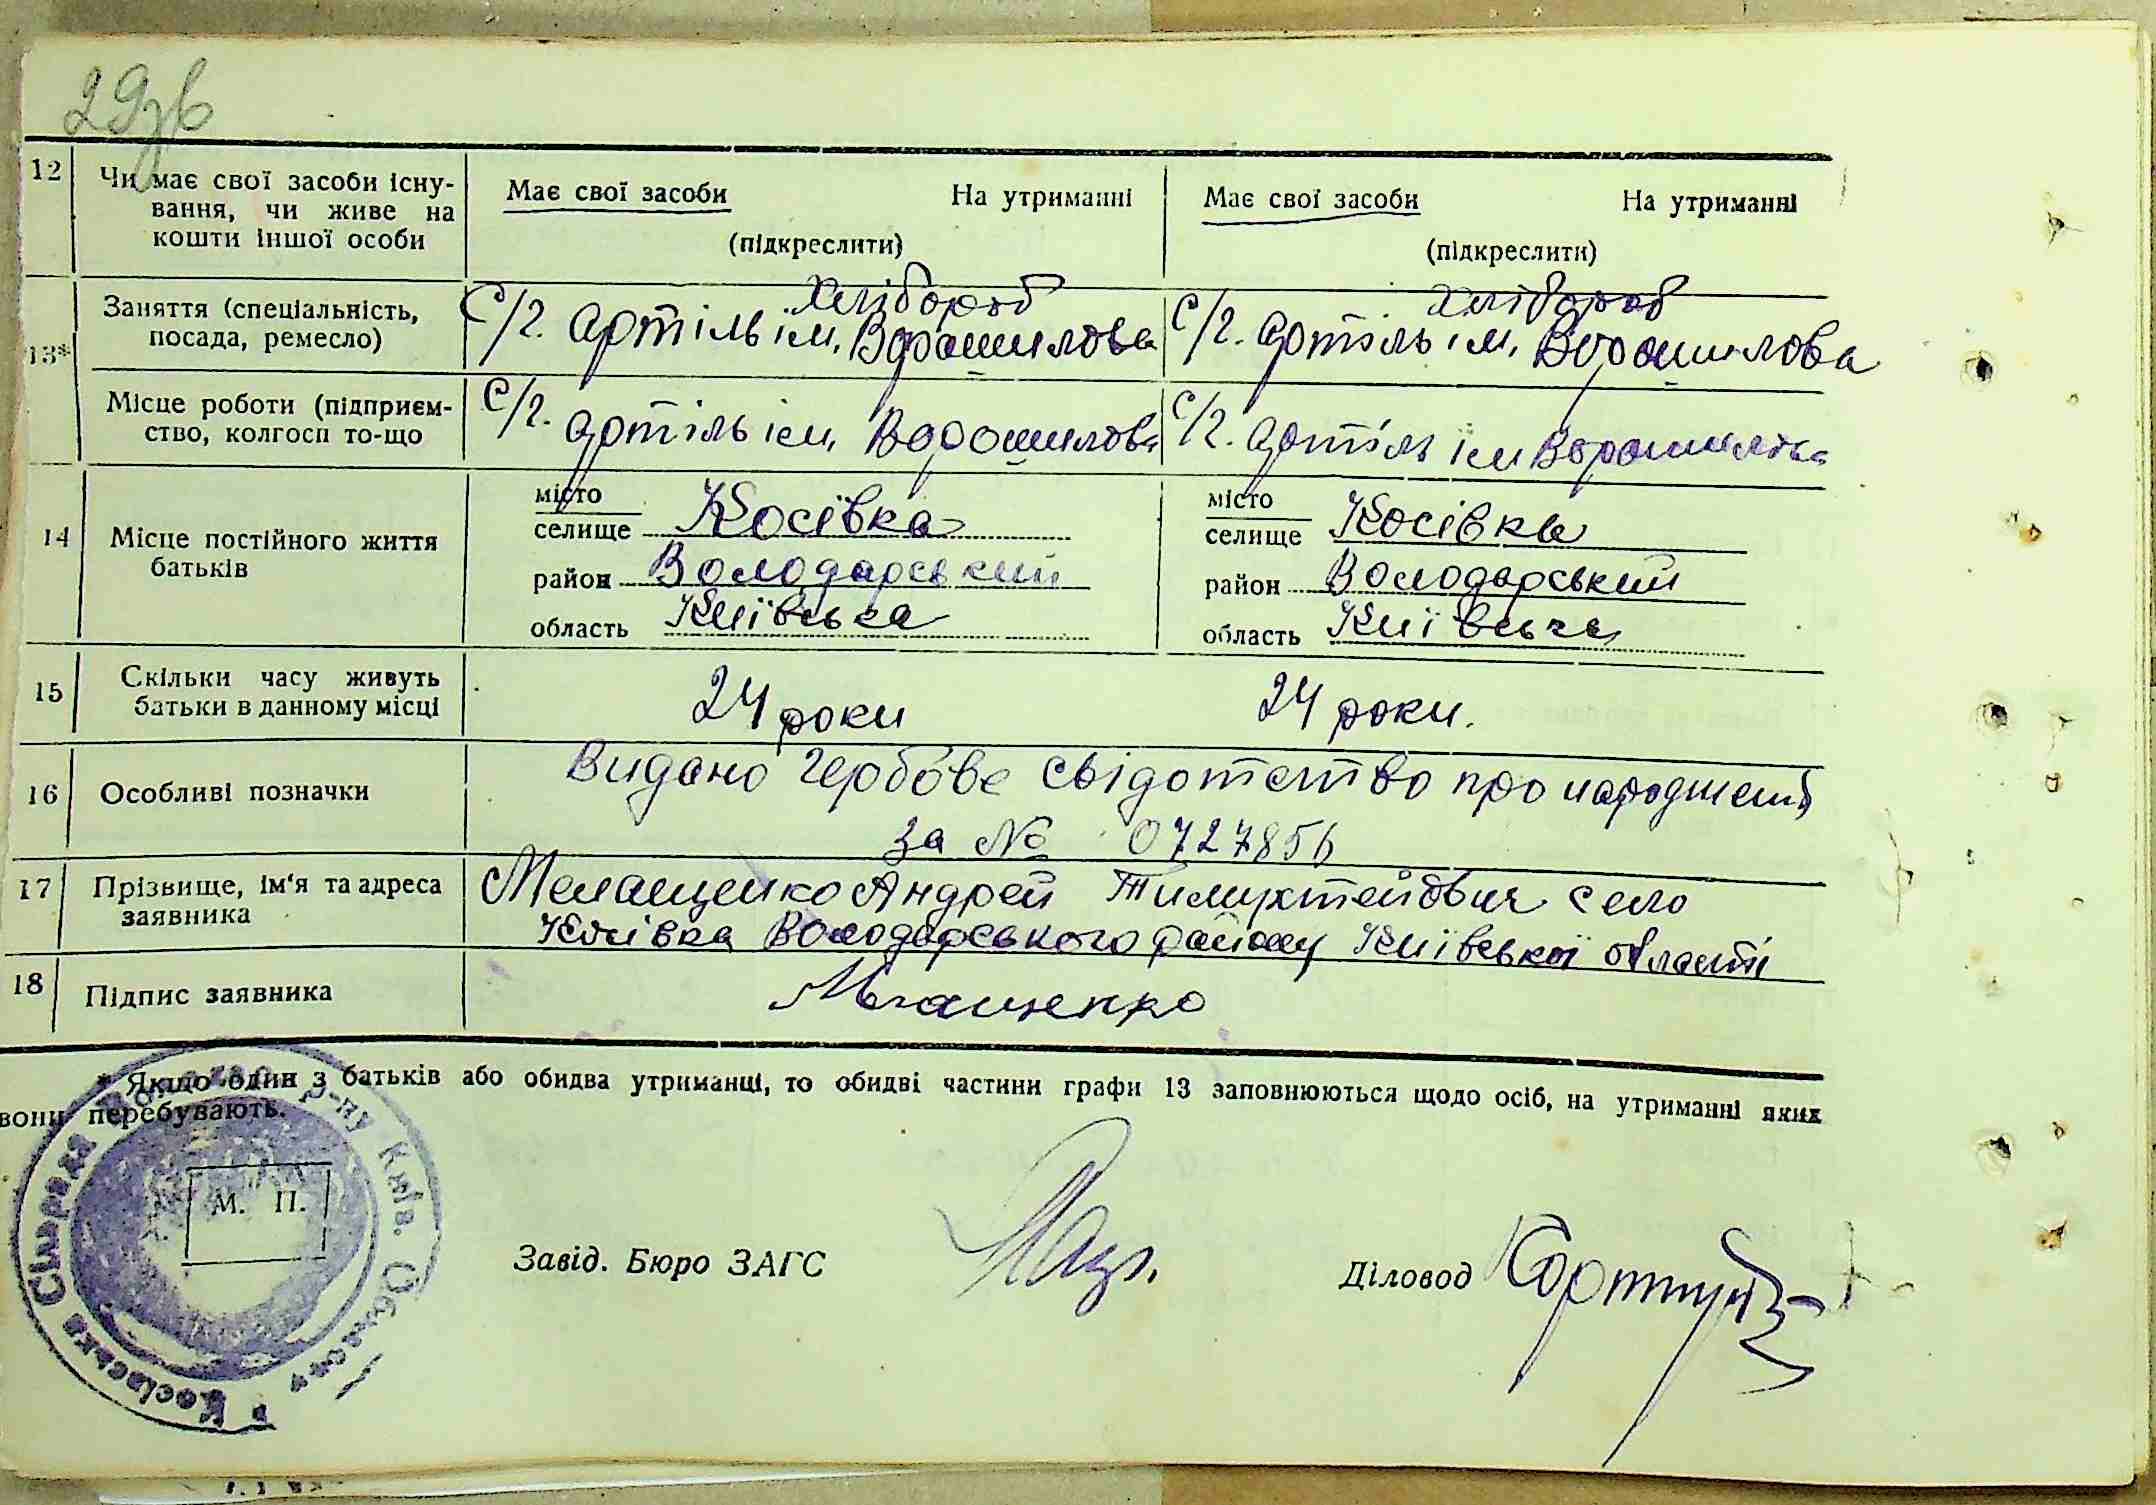 29зв
12 Чи має свої засоби існу-
вання, чи живе на
кошти іншої особи
Має свої засоби На утриманні
(підкреслити)
Має свої засоби На утриманні
(підкреслити)
13* Заняття (спеціальність,
посада, ремесло)
Хлібороб
С/г. артіль ім. Ворошилова
Хлібороб
С/г. артіль ім. Ворошилова
Місце роботи (підприєм-
ство, колгосп то-що
С/г. артіль ім. Ворошилова
С/г. артіль ім Ворошилова
14 Місце постійного життя
батьків
місто
селище Косівка
район Володарський
область Київська
місто
селище Косівка
район Володарський
область Київська
15 Скільки часу живуть
батьки в данному місці
24 роки
24 роки.
16 Особливі позначки
Видано гербове свідотство про народження
за № 0727856
17 Прізвище, ім'я та адреса
заявника
Мелащенко Андрей село
Косівка Володарського району Київської області
18 Підпис заявника
* Якщо один з батьків або обидва утриманці, то обидві частини графи 13 заповнюються щодо осіб, на утриманні яких
вони перебувають.
Косівська Сільрада р-ну Київ. Області
М. П.
Завід. Бюро ЗАГС
Діловод